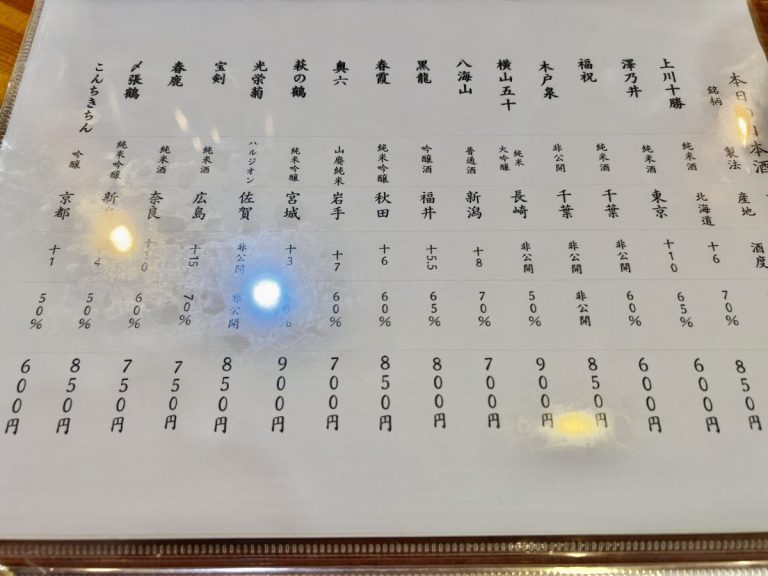 本日の日本酒
銘柄 製法 産地 酒度
上川十勝 純米酒 北海道 +6 70% 850円
澤乃井 純米酒 東京 +10 65% 600円
福祝 純米酒 千葉 非公開 60% 600円
木戸泉 非公開 千葉 非公開 非公開 850円
横山五十 純米大吟醸 長崎 非公開 50% 900円
八海山 普通酒 新潟 +8 70% 700円
黒龍 吟醸酒 福井 +5.5 65% 800円
春霞 純米吟醸 秋田 +6 60% 850円
奥六 山廃純米 岩手 +7 60% 700円
萩の鶴 純米吟醸 宮城 +3 900円
光栄菊 ハルジオン 佐賀 非公開 非公開 850円
宝剣 純米酒 広島 +15 70% 750円
春鹿 純米酒 奈良 60% 750円
〆張鶴 純米吟醸 50% 850円
こんちきちん 吟醸 京都 +1 50% 600円